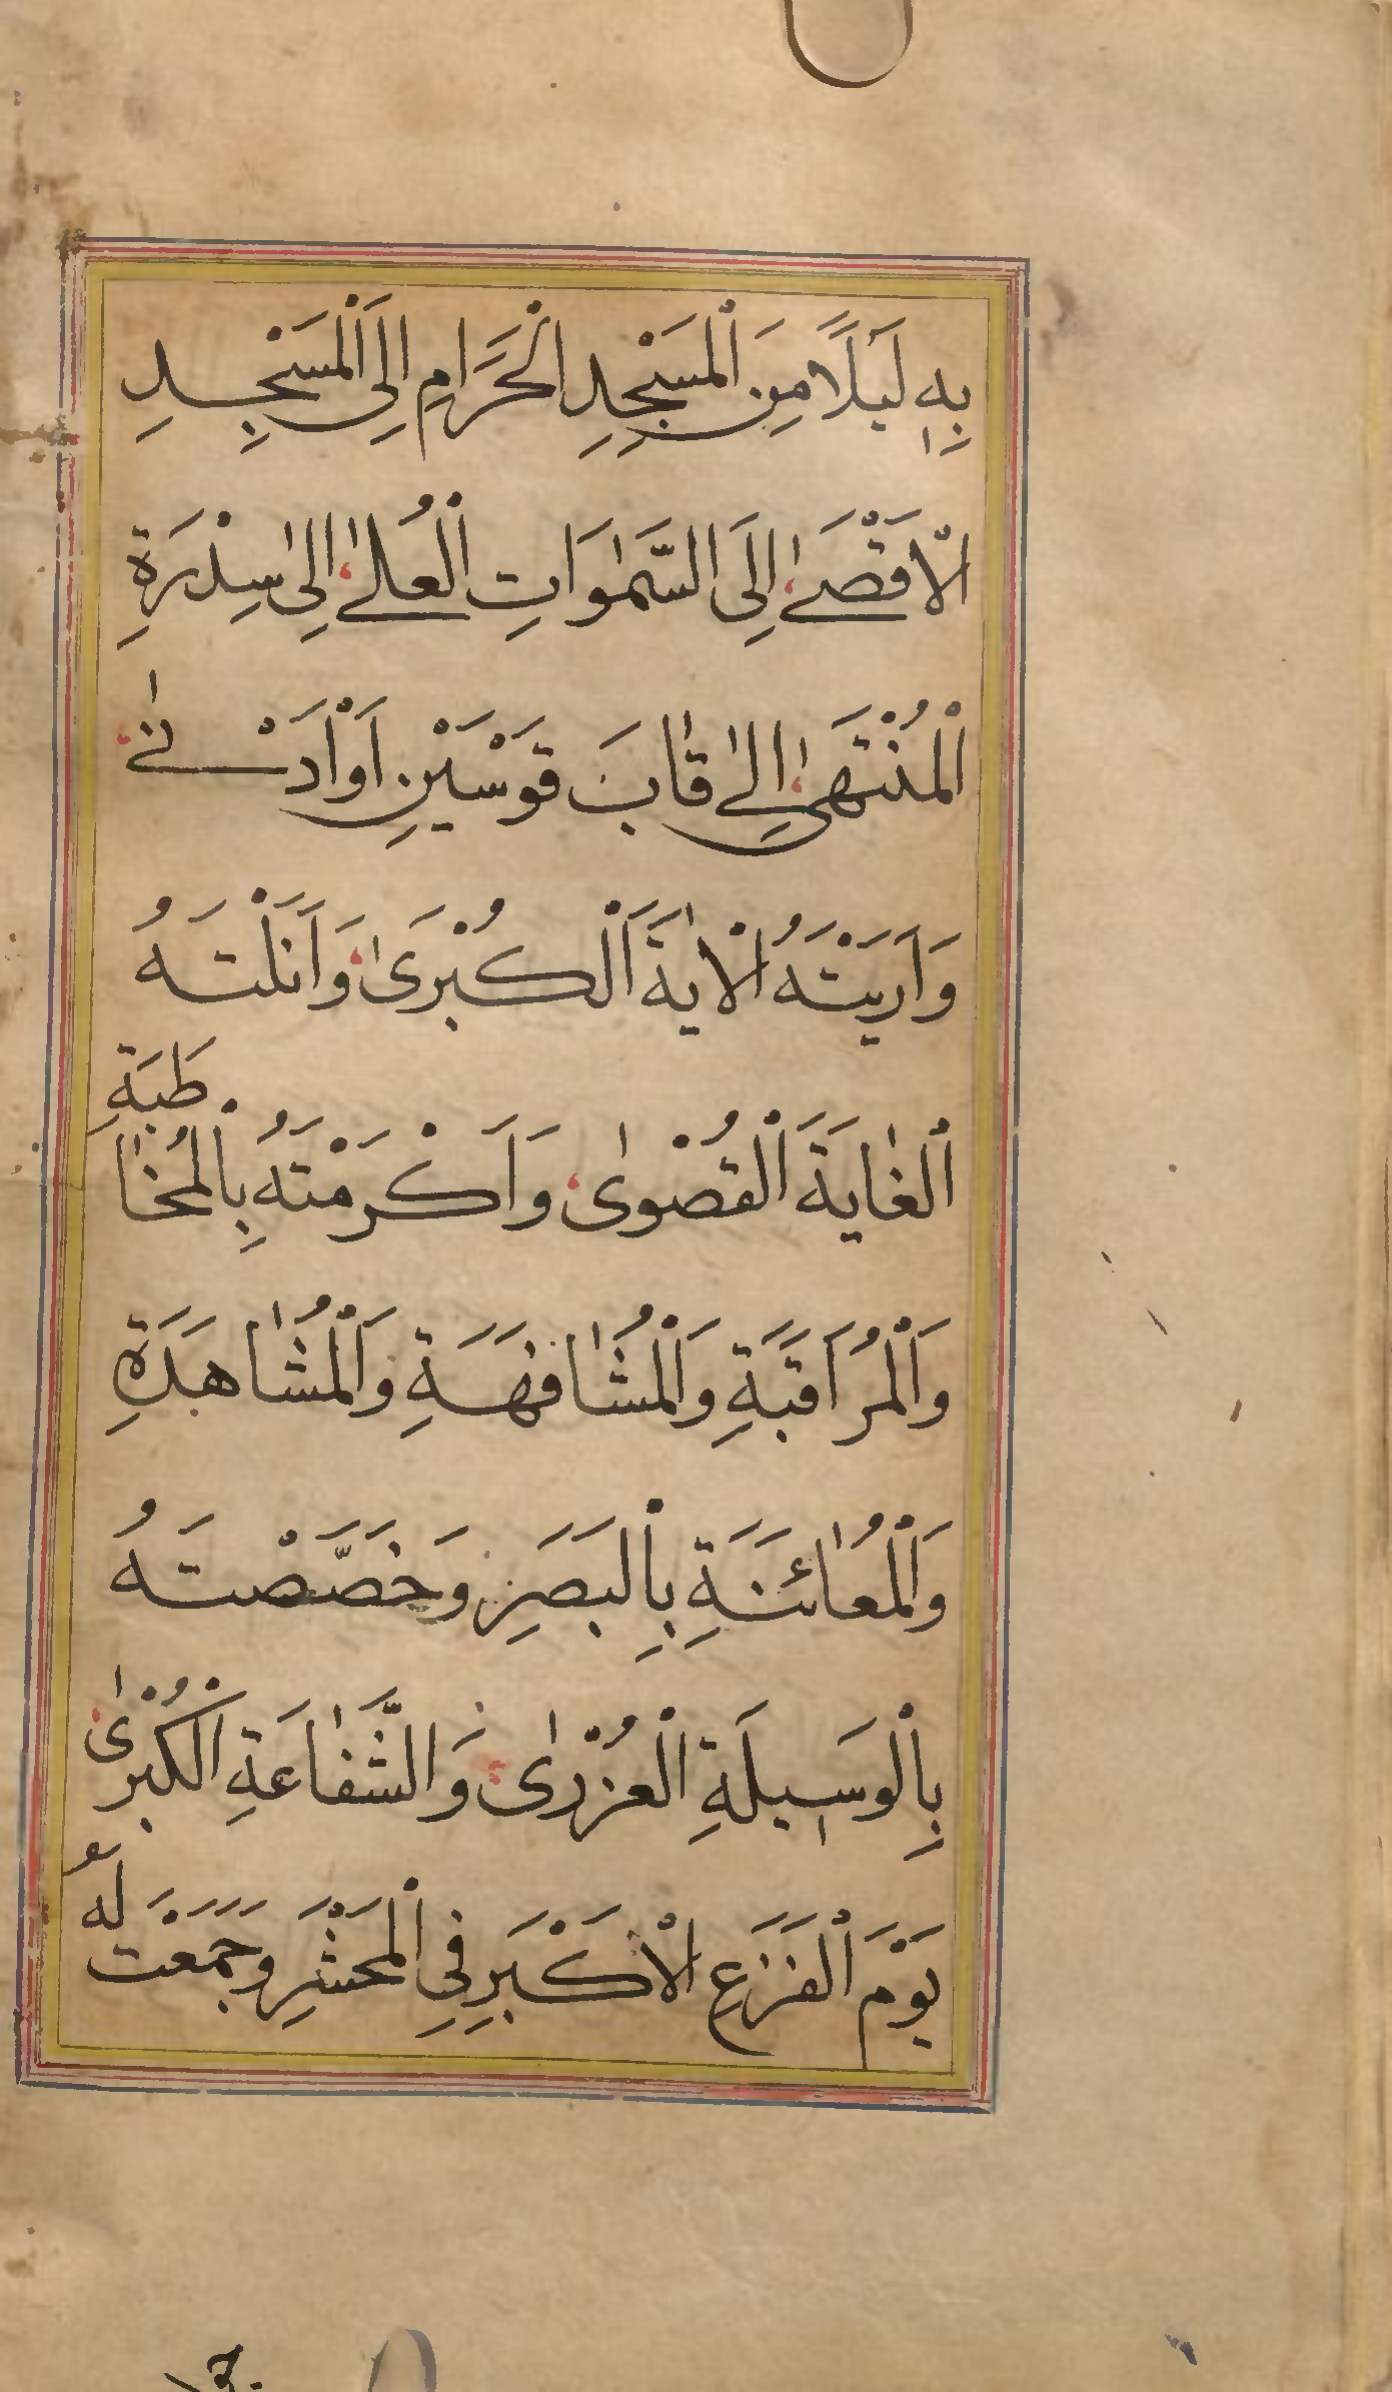 بِهِ لَيْلًا مِنَ الْمَسْجِدِ الْحَرَامِ اِلَى الْمَسْجِدِ
الْاَقْصَى اِلَى السَّمٰوَاتِ الْعُلٰى اِلٰى سِدْرَةِ
الْمُنْتَهٰى اِلٰى قَابَ قَوْسَيْنِ اَوْ اَدْنٰى
وَاَرَيْتَهُ الْاٰيَةَ الْكُبْرٰى وَاَنَلْتَهُ
الْغَايَةَ الْقُصْوٰى وَاَكْرَمْتَهُ بِالْمُخَاطَبَةِ
وَالْمُرَاقَبَةِ وَالْمُشَافَهَةِ وَالْمُشَاهَدَةِ
وَالْمُعَائَنَةِ بِالْبَصَرِ وَخَصَّصْتَهُ
بِالْوَسِيلَةِ الْعُذْرٰى وَالشَّفَاعَةِ الْكُبْرٰى
يَوْمَ الْفَزَعِ الْاَكْبَرِ فِي الْمَحْشَرِ وَجَمَعْتَ لَهُ